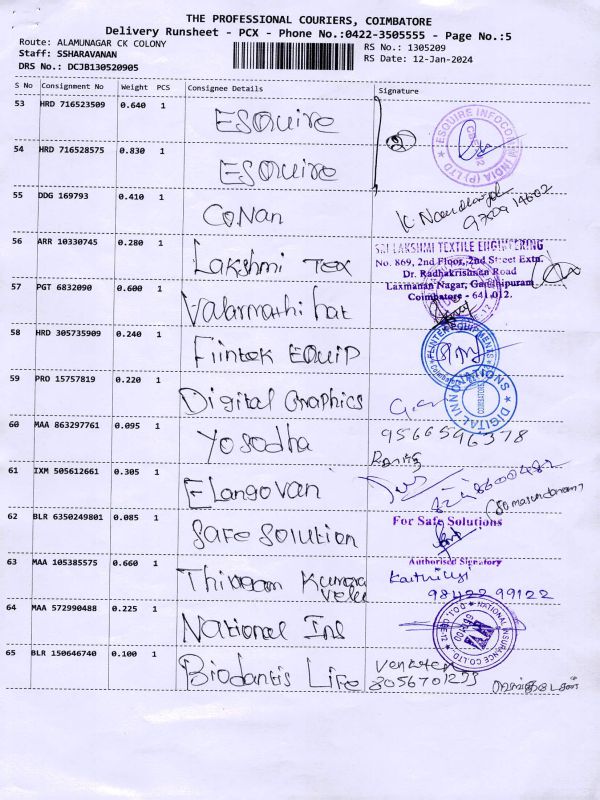 THE PROFESSIONAL COURIERS, COIMBATORE
Delivery Runsheet - PCX - Phone No.:0422-3505555 - Page No.:5
Route: ALAMUNAGAR CK COLONY
RS No.: 1305209
Staff: SSHARAVANAN
RS Date: 12-Jan-2024
DRS No.: DCJB130520905
S No Consignment No Weight PCS Consignee Details Signature
53 HRD 716523509 0.640 1 ESQuire
ESQUIRE INFOCOM INDIA (P) LTD
54 HRD 716528575 0.830 1 ESQuire
55 DDG 169793 0.410 1 CoNan
56 ARR 10330745 0.280 1 Lakshmi Tex
SRI LAKSHMI TEXTILE ENGINEERING
No. 869, 2nd Floor, 2nd Street Extn.
Dr. Radhakrishnan Road
Laxmanan Nagar, Gandhipuram
Coimbatore - 641 012.
57 PGT 6832090 0.600 1 Valarmathi hat
58 HRD 305735909 0.240 1 Flintek EQUIP
59 PRO 15757819 0.220 1 Digital Graphics
DIGITAL INNOVATIONS
COIMBATORE
60 MAA 863297761 0.095 1 Yosodha
9566596378
61 IXM 505612661 0.305 1 Elangovan
(Somasundaram)
62 BLR 6350249801 0.085 1 Safe Solution
For Safe Solutions
Authorised Signatory
63 MAA 105385575 0.660 1 Thivagam Kumara
Velu
98422 99122
64 MAA 572990488 0.225 1 National Ins
NATIONAL INSURANCE CO. LTD.
65 BLR 150646740 0.100 1 Biodantis Life